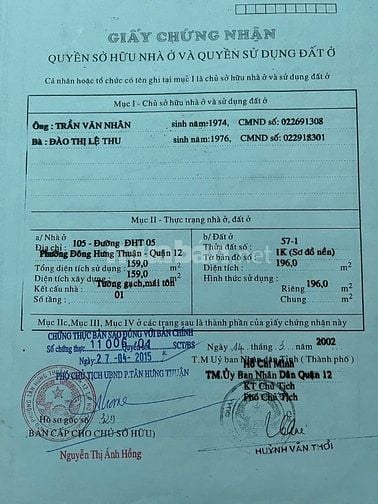 GIẤY CHỨNG NHẬN
QUYỀN SỞ HỮU NHÀ Ở VÀ QUYỀN SỬ DỤNG ĐẤT Ở
Cá nhân hoặc tổ chức có tên ghi tại mục I là chủ sở hữu nhà ở và sử dụng đất ở
Mục I - Chủ sở hữu nhà ở và sử dụng đất ở
Ông : TRẦN VĂN NHÂN sinh năm:1974, CMND số: 022691308
Bà : ĐÀO THỊ LỆ THU sinh năm:1976, CMND số: 022918301
Mục II - Thực trạng nhà ở, đất ở
a/ Nhà ở
Địa chỉ : 105 - Đường ĐHT 05
Phường Đông Hưng Thuận - Quận 12
Tổng diện tích sử dụng : 159,0 m2
Diện tích xây dựng : 159,0 m2
Kết cấu nhà : Tường gạch,mái tôn
Số tầng : 01
b/ Đất ở
Thửa đất số : 57-1
Tờ bản đồ số : 1K (Sơ đồ nền)
Diện tích : 196,0 m2
Hình thức sử dụng :
Riêng 196,0 m2
Chung m2
Mục IIc, Mục III, Mục IV ở các trang sau là thành phần của giấy chứng nhận này
CHỨNG THỰC BẢN SAO ĐÚNG VỚI BẢN CHÍNH
Số chứng thực: 11006 Quyển số: 04 SCT/BS
Ngày: 27-04-2015
PHÓ CHỦ TỊCH UBND P.TÂN HƯNG THUẬN
Hồ sơ gốc số 329
(BẢN CẤP CHO CHỦ SỞ HỮU)
Nguyễn Thị Ánh Hồng
Ngày 14 tháng 3 năm 2002
T.M Uỷ ban Nhân dân Tỉnh (Thành phố)
Hồ Chí Minh
TM.Ủy Ban Nhân Dân Quận 12
KT Chủ Tịch
Phó Chủ Tịch
HUỲNH VĂN THỚI